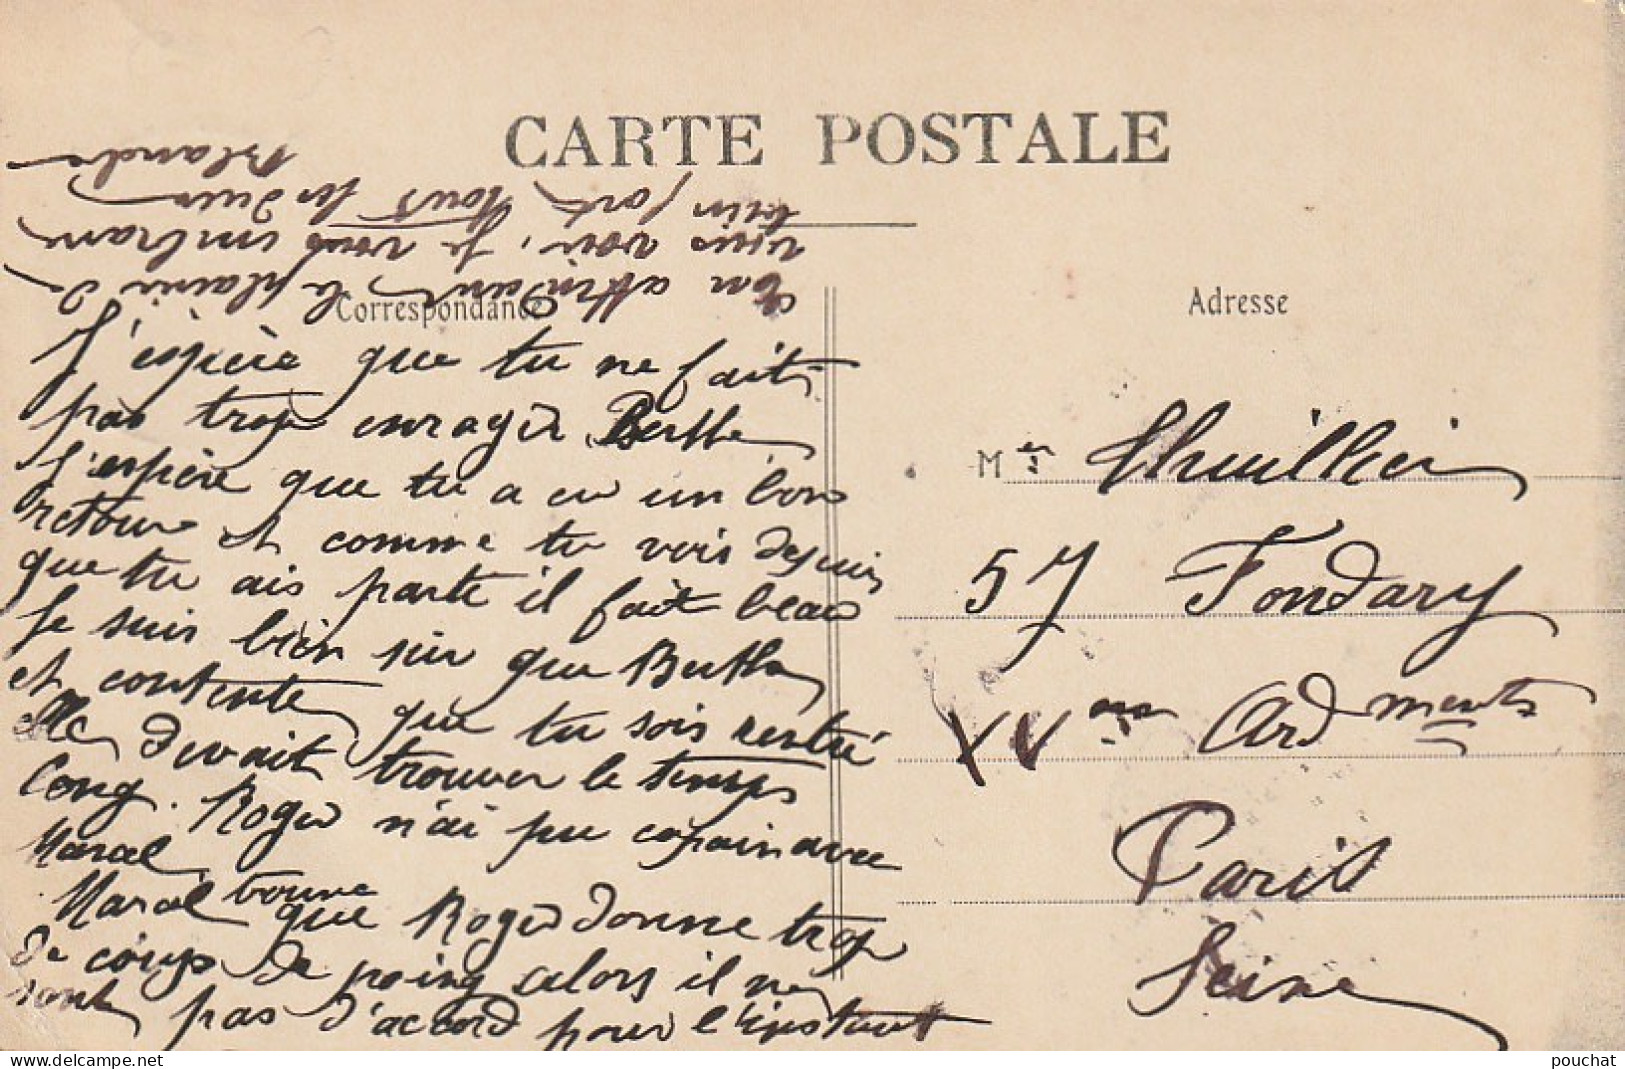 CARTE POSTALE
Correspondance
Adresse
J'espère que tu ne fait
pas trop enrager Berthe
J'espère que tu a eu un bon
retour et comme tu vois depuis
que tu ais parti il fait beau
Je suis bien sur que Berthe
et contente que tu sois rentré
elle devait trouver le temps
long. Roger n'ai pu copain avec
Marcel
Marcel trouve que Roger donne trop
de coups de poing alors il ne
sont pas d'accord pour l'instant
En attendant le plaisir de
vous voir, je vous embrasse
bien fort tous les deux
Blanche
Mr Thuillier
57 Fondary
XVem Ardments
Paris
Seine
delcampe.net
pouchat